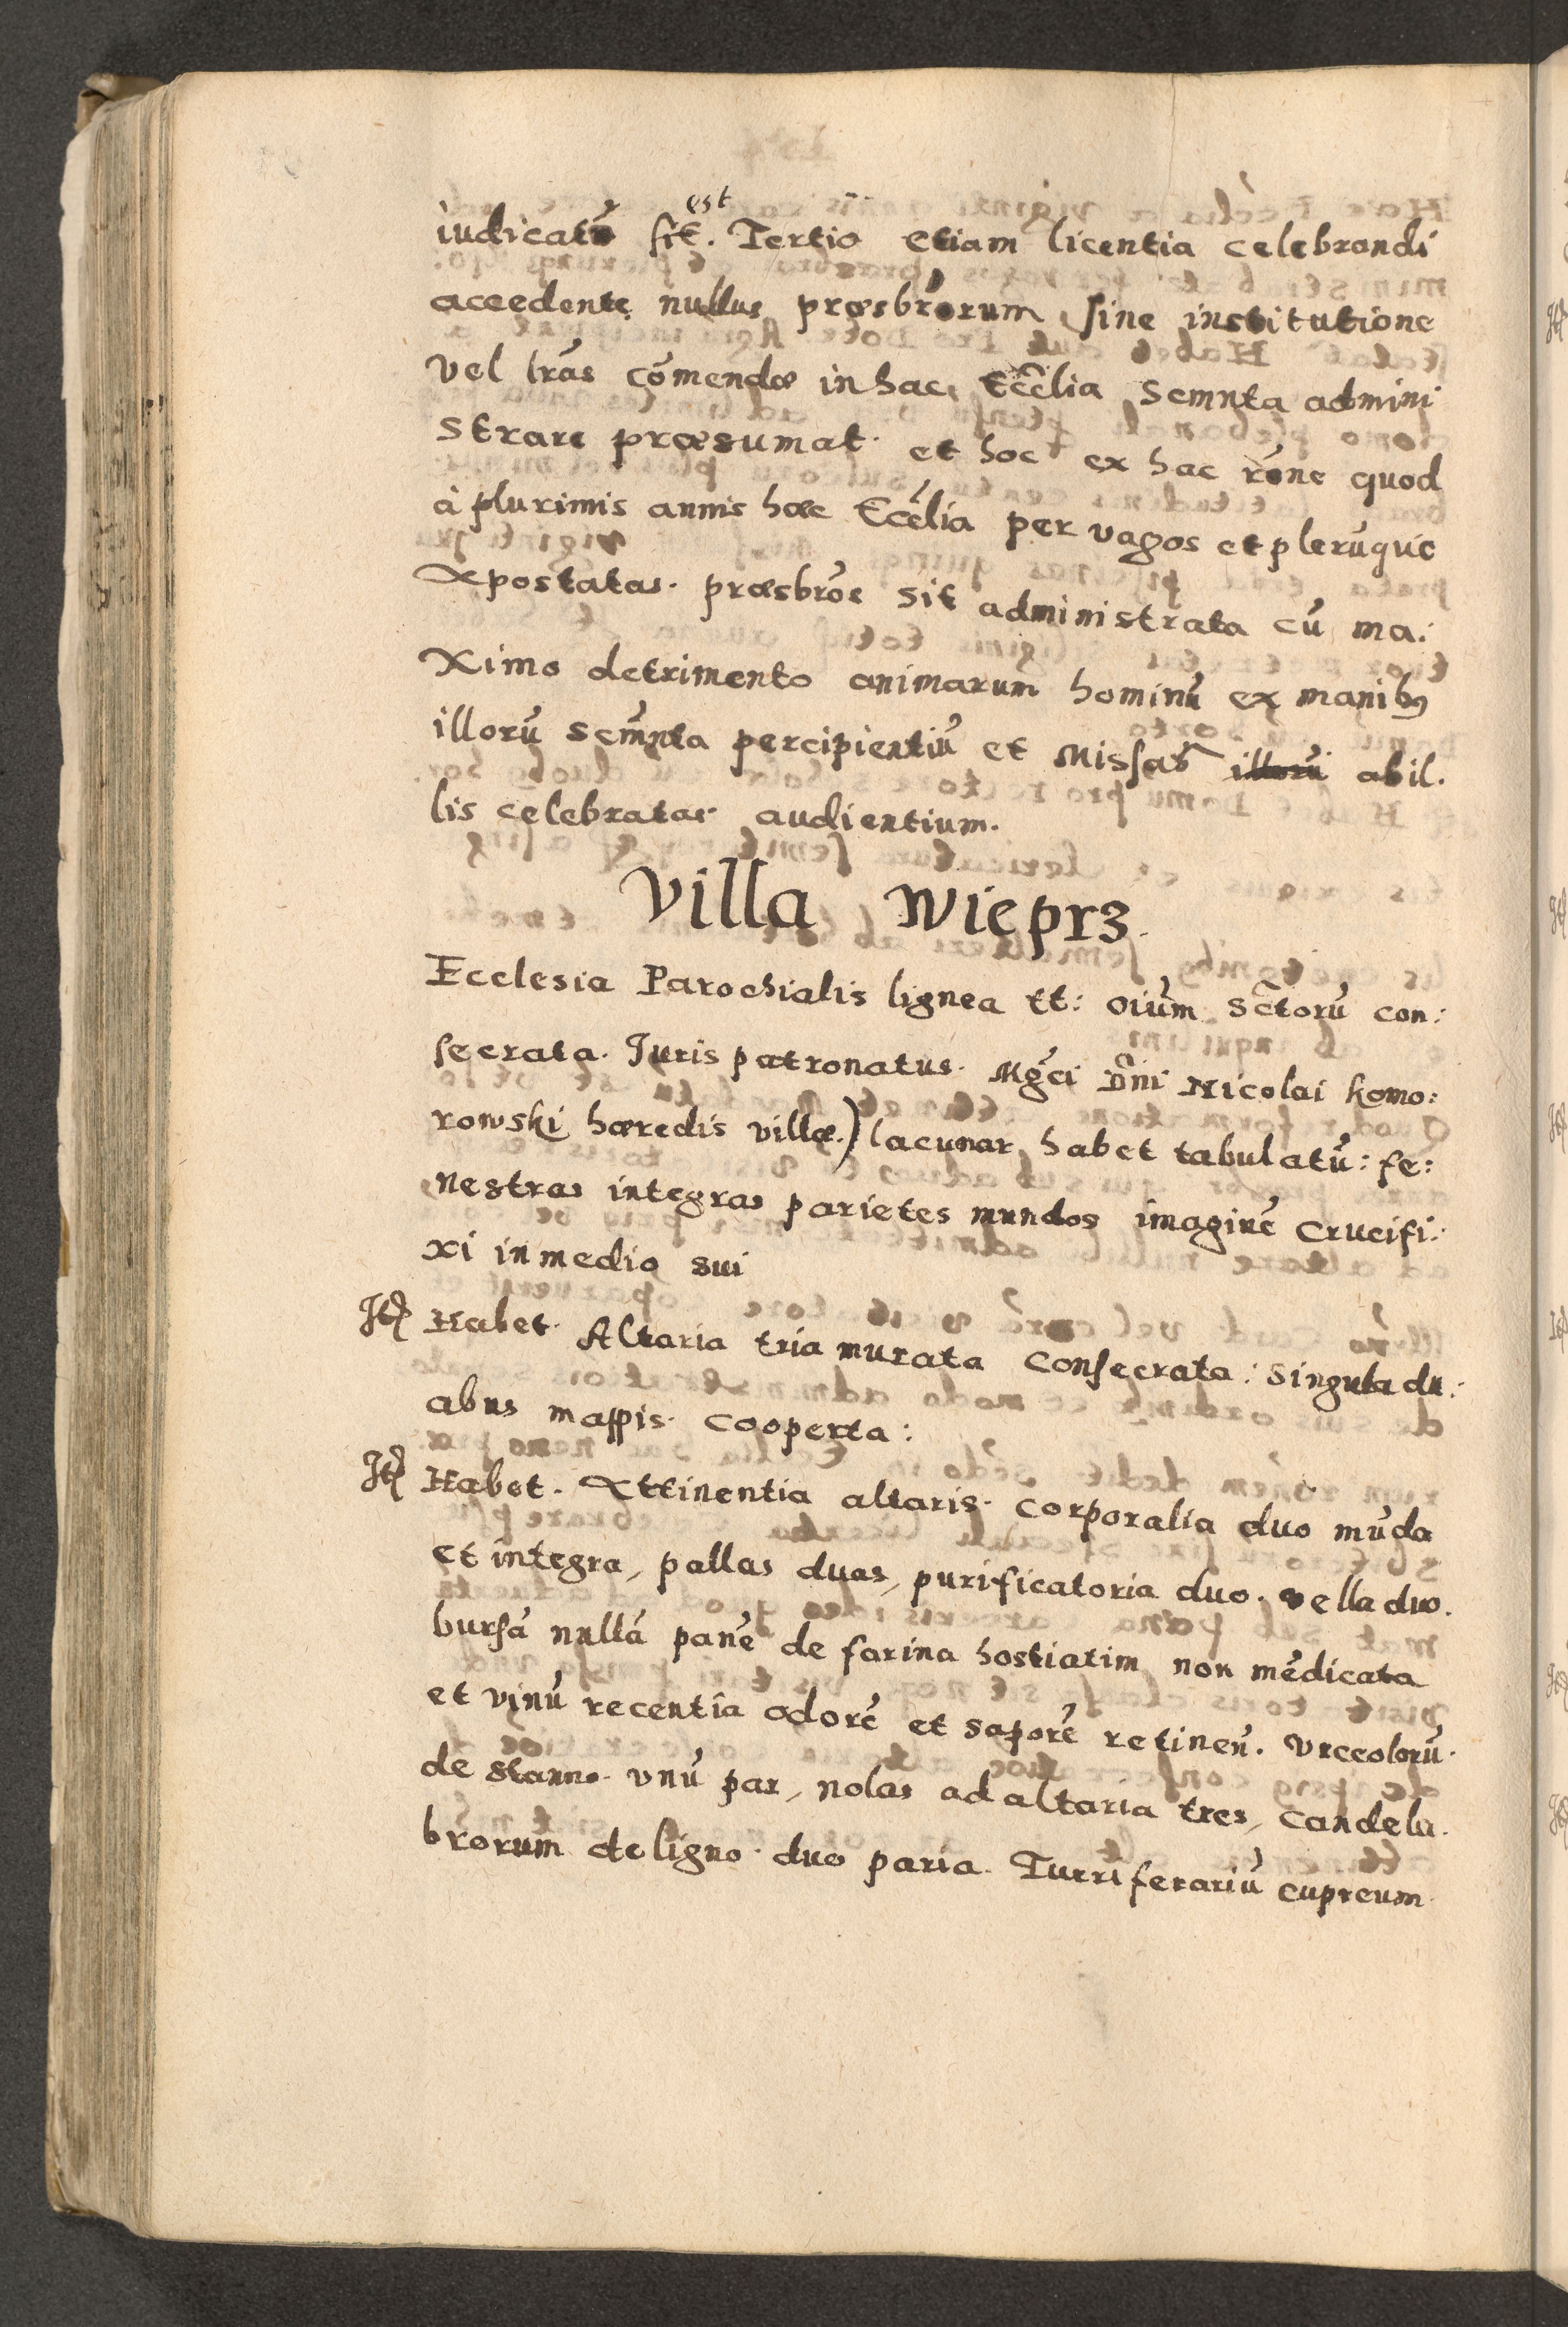 iudicatũ sit. est Tertio etiam licentia celebrandi
accedente nullus præsbrorum sine institutione
vel lras cõmendæ in hac Ecclia Scmnta admini
strare præsumat. et hoc ex hac rone quod
à plurimis annis hæc Ecclia per vagos et plerũque
Apostatas. præsbros sit administrata cũ ma:
ximo detrimento animarum hominũ ex manibꝰ
illorũ Scmnta percipientiũ et Missas illorũ abil.
lis celebratas audientium.
Villa Wieprz.
Ecclesia Parochialis lignea tt: oium Sctorũ con:
secrata. Iuris patronatus. Mgci Dni Nicolai Komo:
rowski hæredis villæ.) lacunar habet tabulatũ: fe:
nestras integras parietes mundos imaginẽ Crucifi:
xi in medio sui
Itẽ Habet. Altaria tria murata consecrata: singula du:
abus mappis. cooperta:
Itẽ Habet. Attinentia altaris. corporalia duo mũda
et integra, pallas duas, purificatoria duo. vella duo.
bursã nullã panẽ de farina hostiatim non mẽdicata
et vinũ recentia odorẽ et saporẽ retineñ. Vrceolorũ.
de stanno. vnũ par, nolas ad altaria tres, Candela.
brorum de ligno. duo paria. Turriferariũ cupreum.